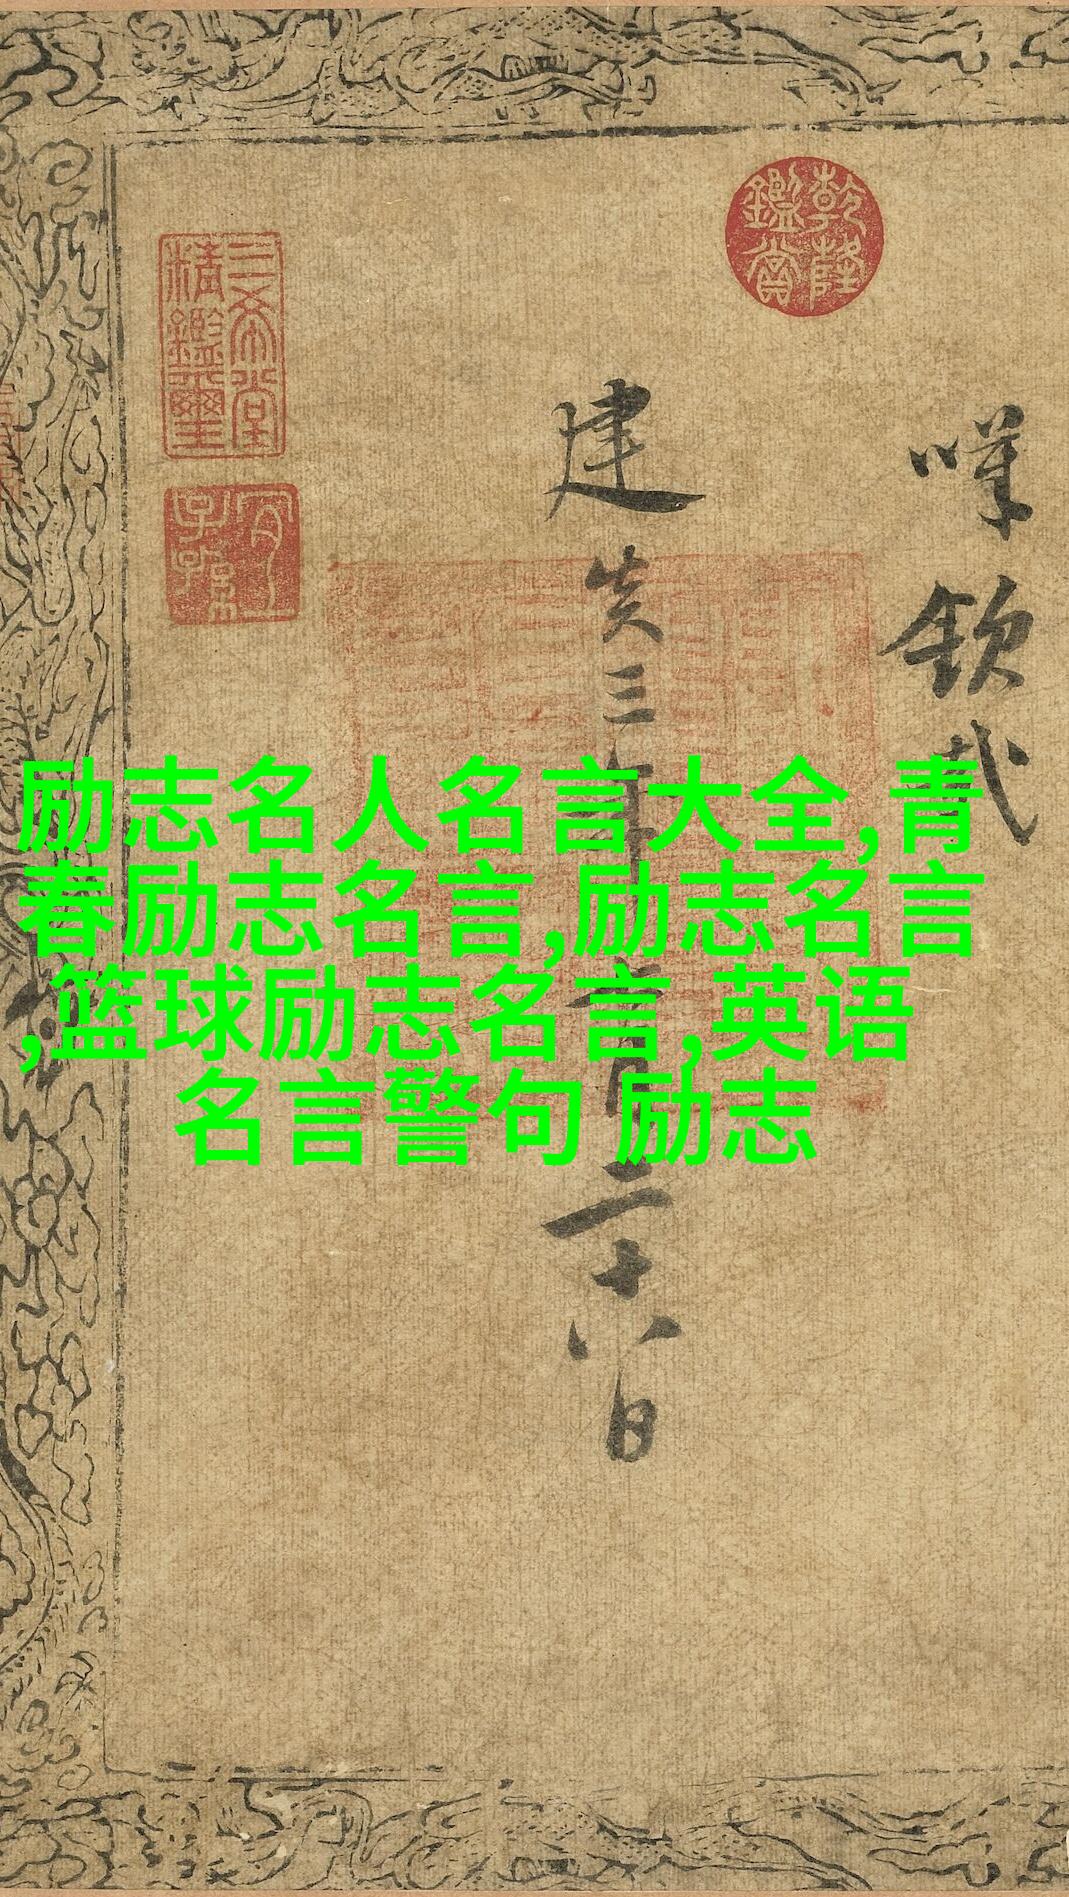 欽哉
建炎三年月二十八日
乾隆鑑賞
三希堂精鑑璽
宜子孫
励志名人名言大全,青
春励志名言,励志名言
,篮球励志名言,英语
名言警句 励志